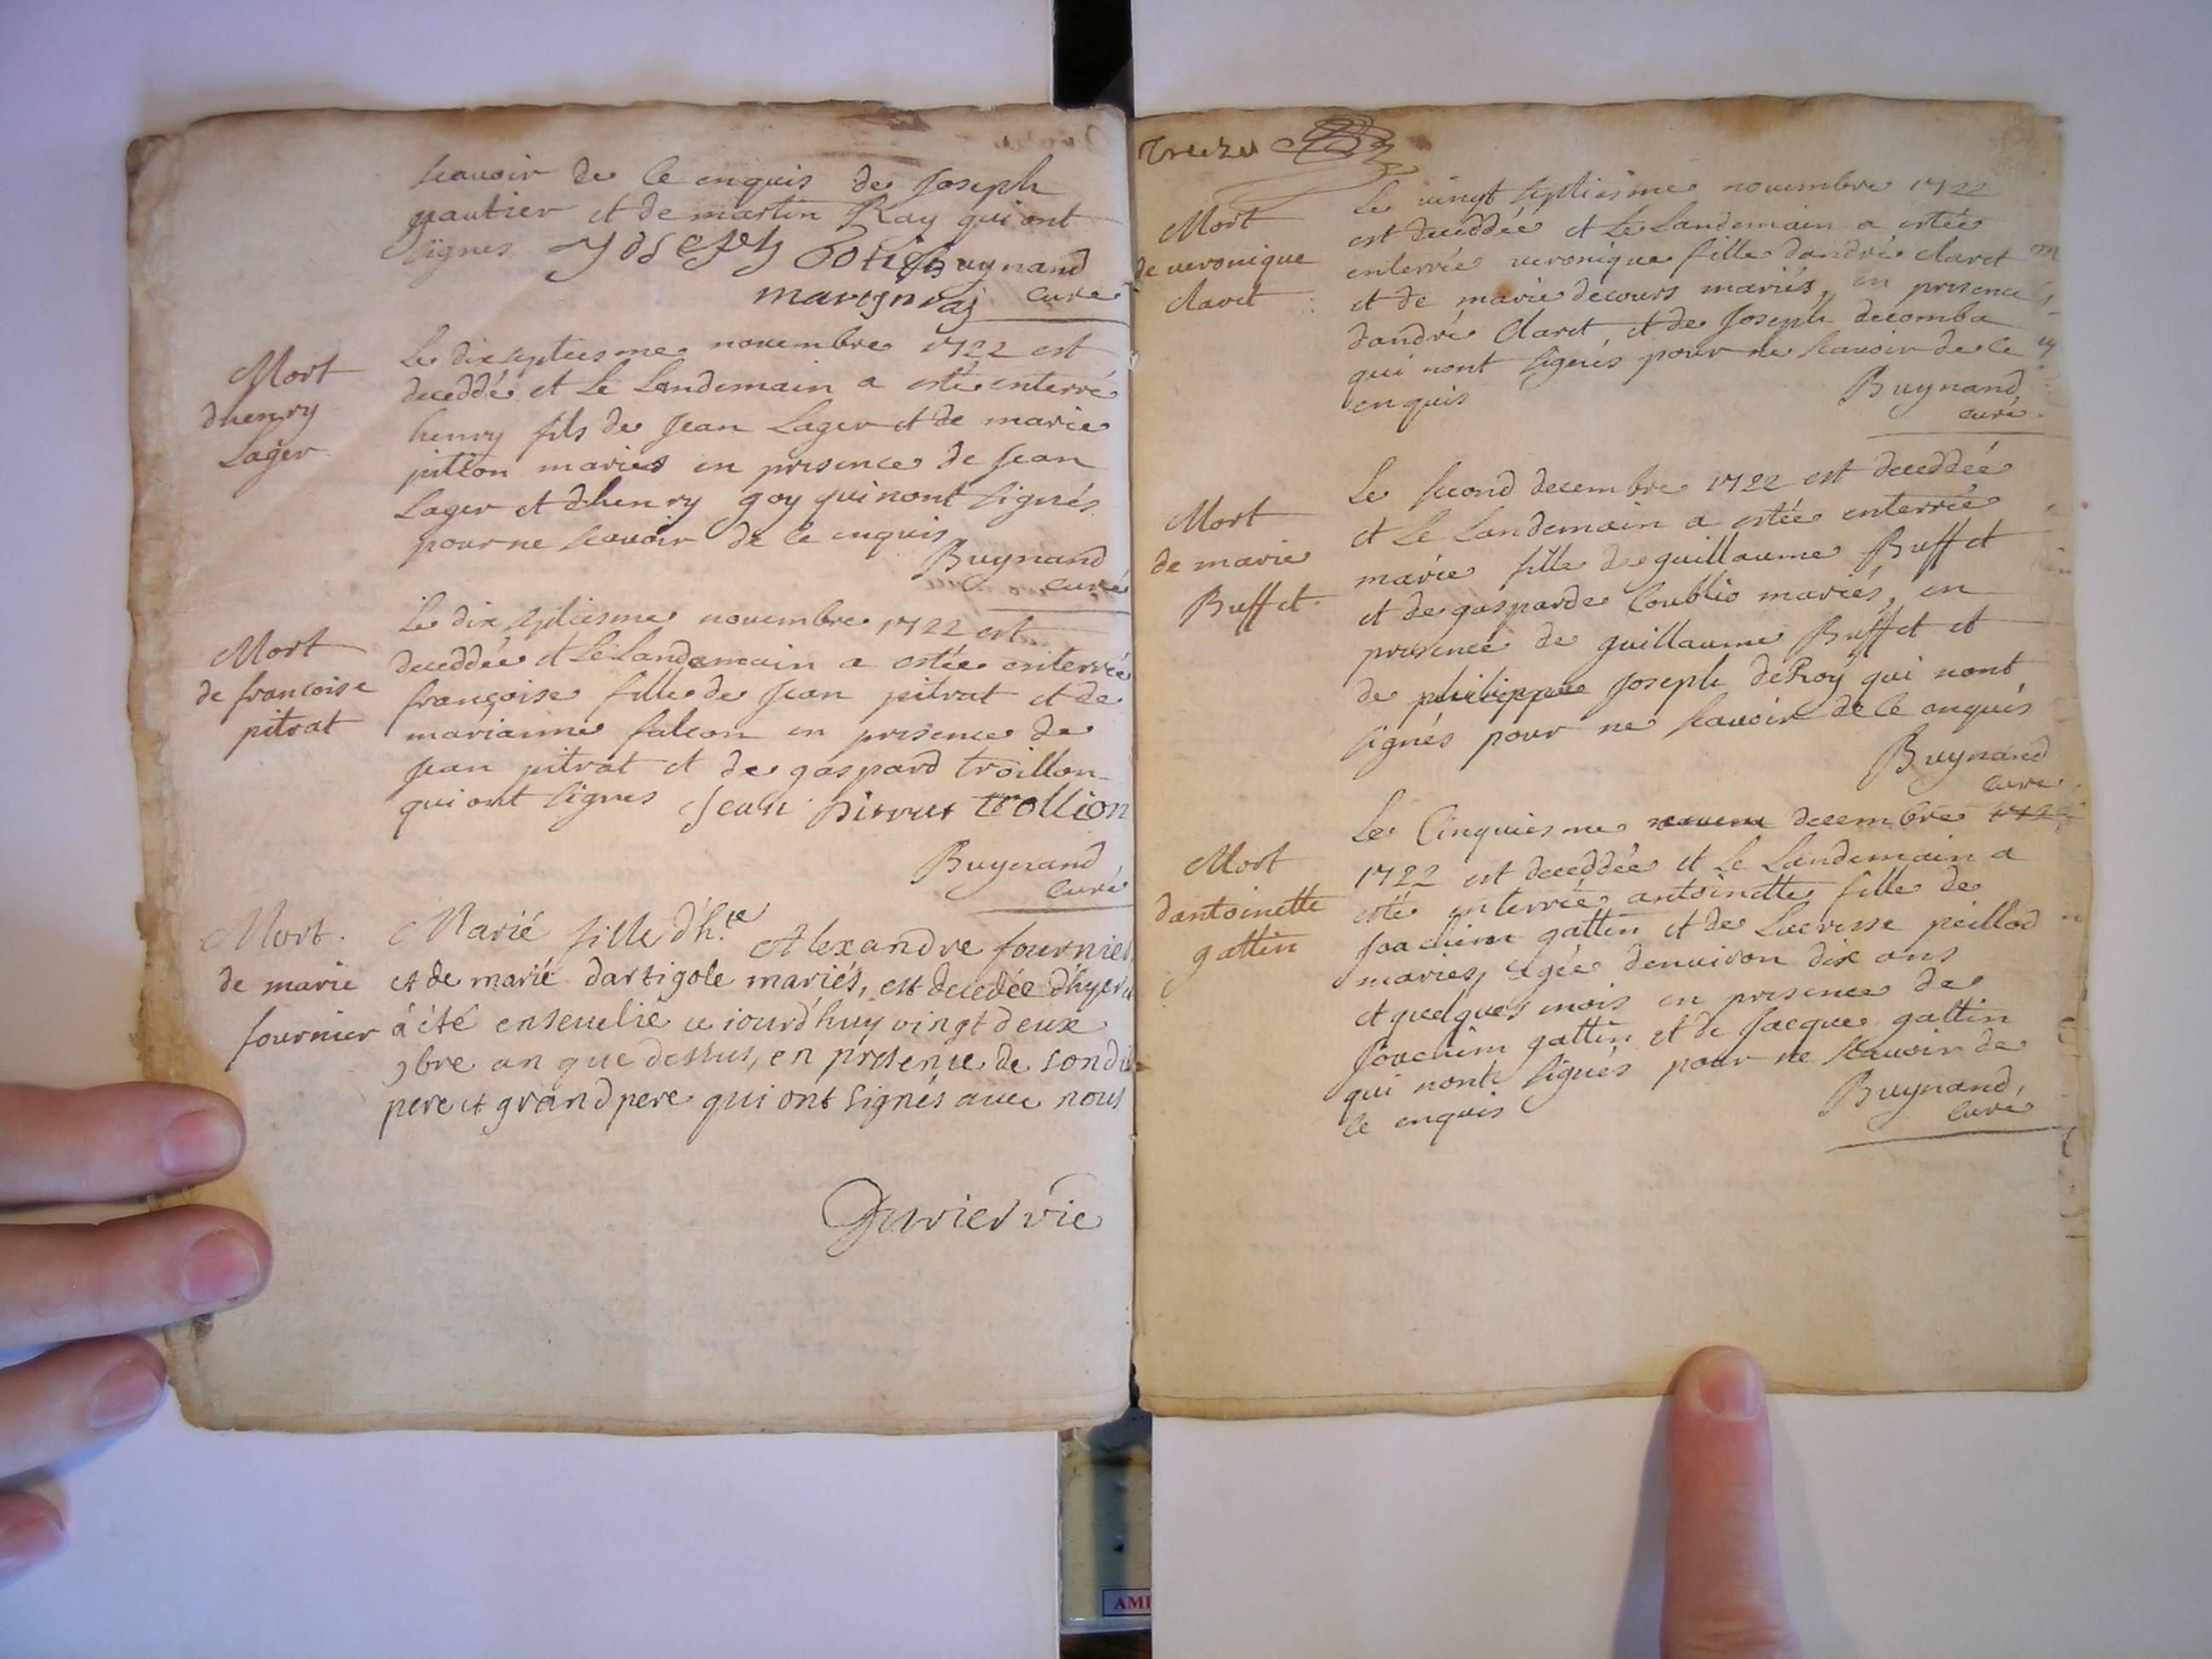 scavoir de ce enquis de Joseph
gautier et de martin Ray qui ont
signes Joseph Buynand
martin raj curé
Mort
dhenry
Lager
Le dixseptiesme novembre 1722 est
deceddé et Le Landemain a esté enterré
henry fils de Jean Lager et de marie
pitton mariés en presence de Jean
Lager et dhenry goy qui nont signés
pour ne scavoir de ce enquis
Buynand
curé
Mort
de francoise
pitrat
Le dix septiesme novembre 1722 est
deceddée et Le Landemain a estée enterrée
françoise fille de Jean pitrat et de
marianne falcon en presence de
Jean pitrat et de gaspard troillon
qui ont signes Jean pitrat trollion
Buynand
curé
Mort
de marie
fournier
Marié fille d'h.te Alexandre fournier
et de marié dartigole mariés, est decedée d'hyer et
à été ensevelie ce iourd'huy vingt deux
9bre an que dessus, en presence de sondit
pere et grand pere qui ont signés avec nous
vie
treize
Mort
de veronique
claret
Le vingt septiesme novembre 1722
est deceddée et Le Landemain a estée
enterrée veronique fille dandré claret
et de marie decours mariés, en presence
dandré Claret et de Joseph decomba
qui nont signés pour ne scavoir de ce
enquis
Buynand
curé
Mort
de marie
Buffet
Le second decembre 1722 est deceddée
et Le Landemain a estée enterrée
marie fille de guillaume Buffet
et de gasparde Coublio mariés, en
presence de guillaume Buffet et
de philippe Joseph deRoy qui nont
signés pour ne scavoir de ce enquis
Buynand
curé
Mort
dantoinette
gattin
Le Cinquiesme decembre 172
1722 est deceddée et Le Landemain a
esté enterrée antoinette fille de
Joachim gattin et de Lucresse peillod
mariés, agée denviron dix ans
et quelques mois en presence de
Joachim gattin et de Jacque gattin
qui nont signés pour ne scavoir de
ce enquis
Buynand,
curé
AMI